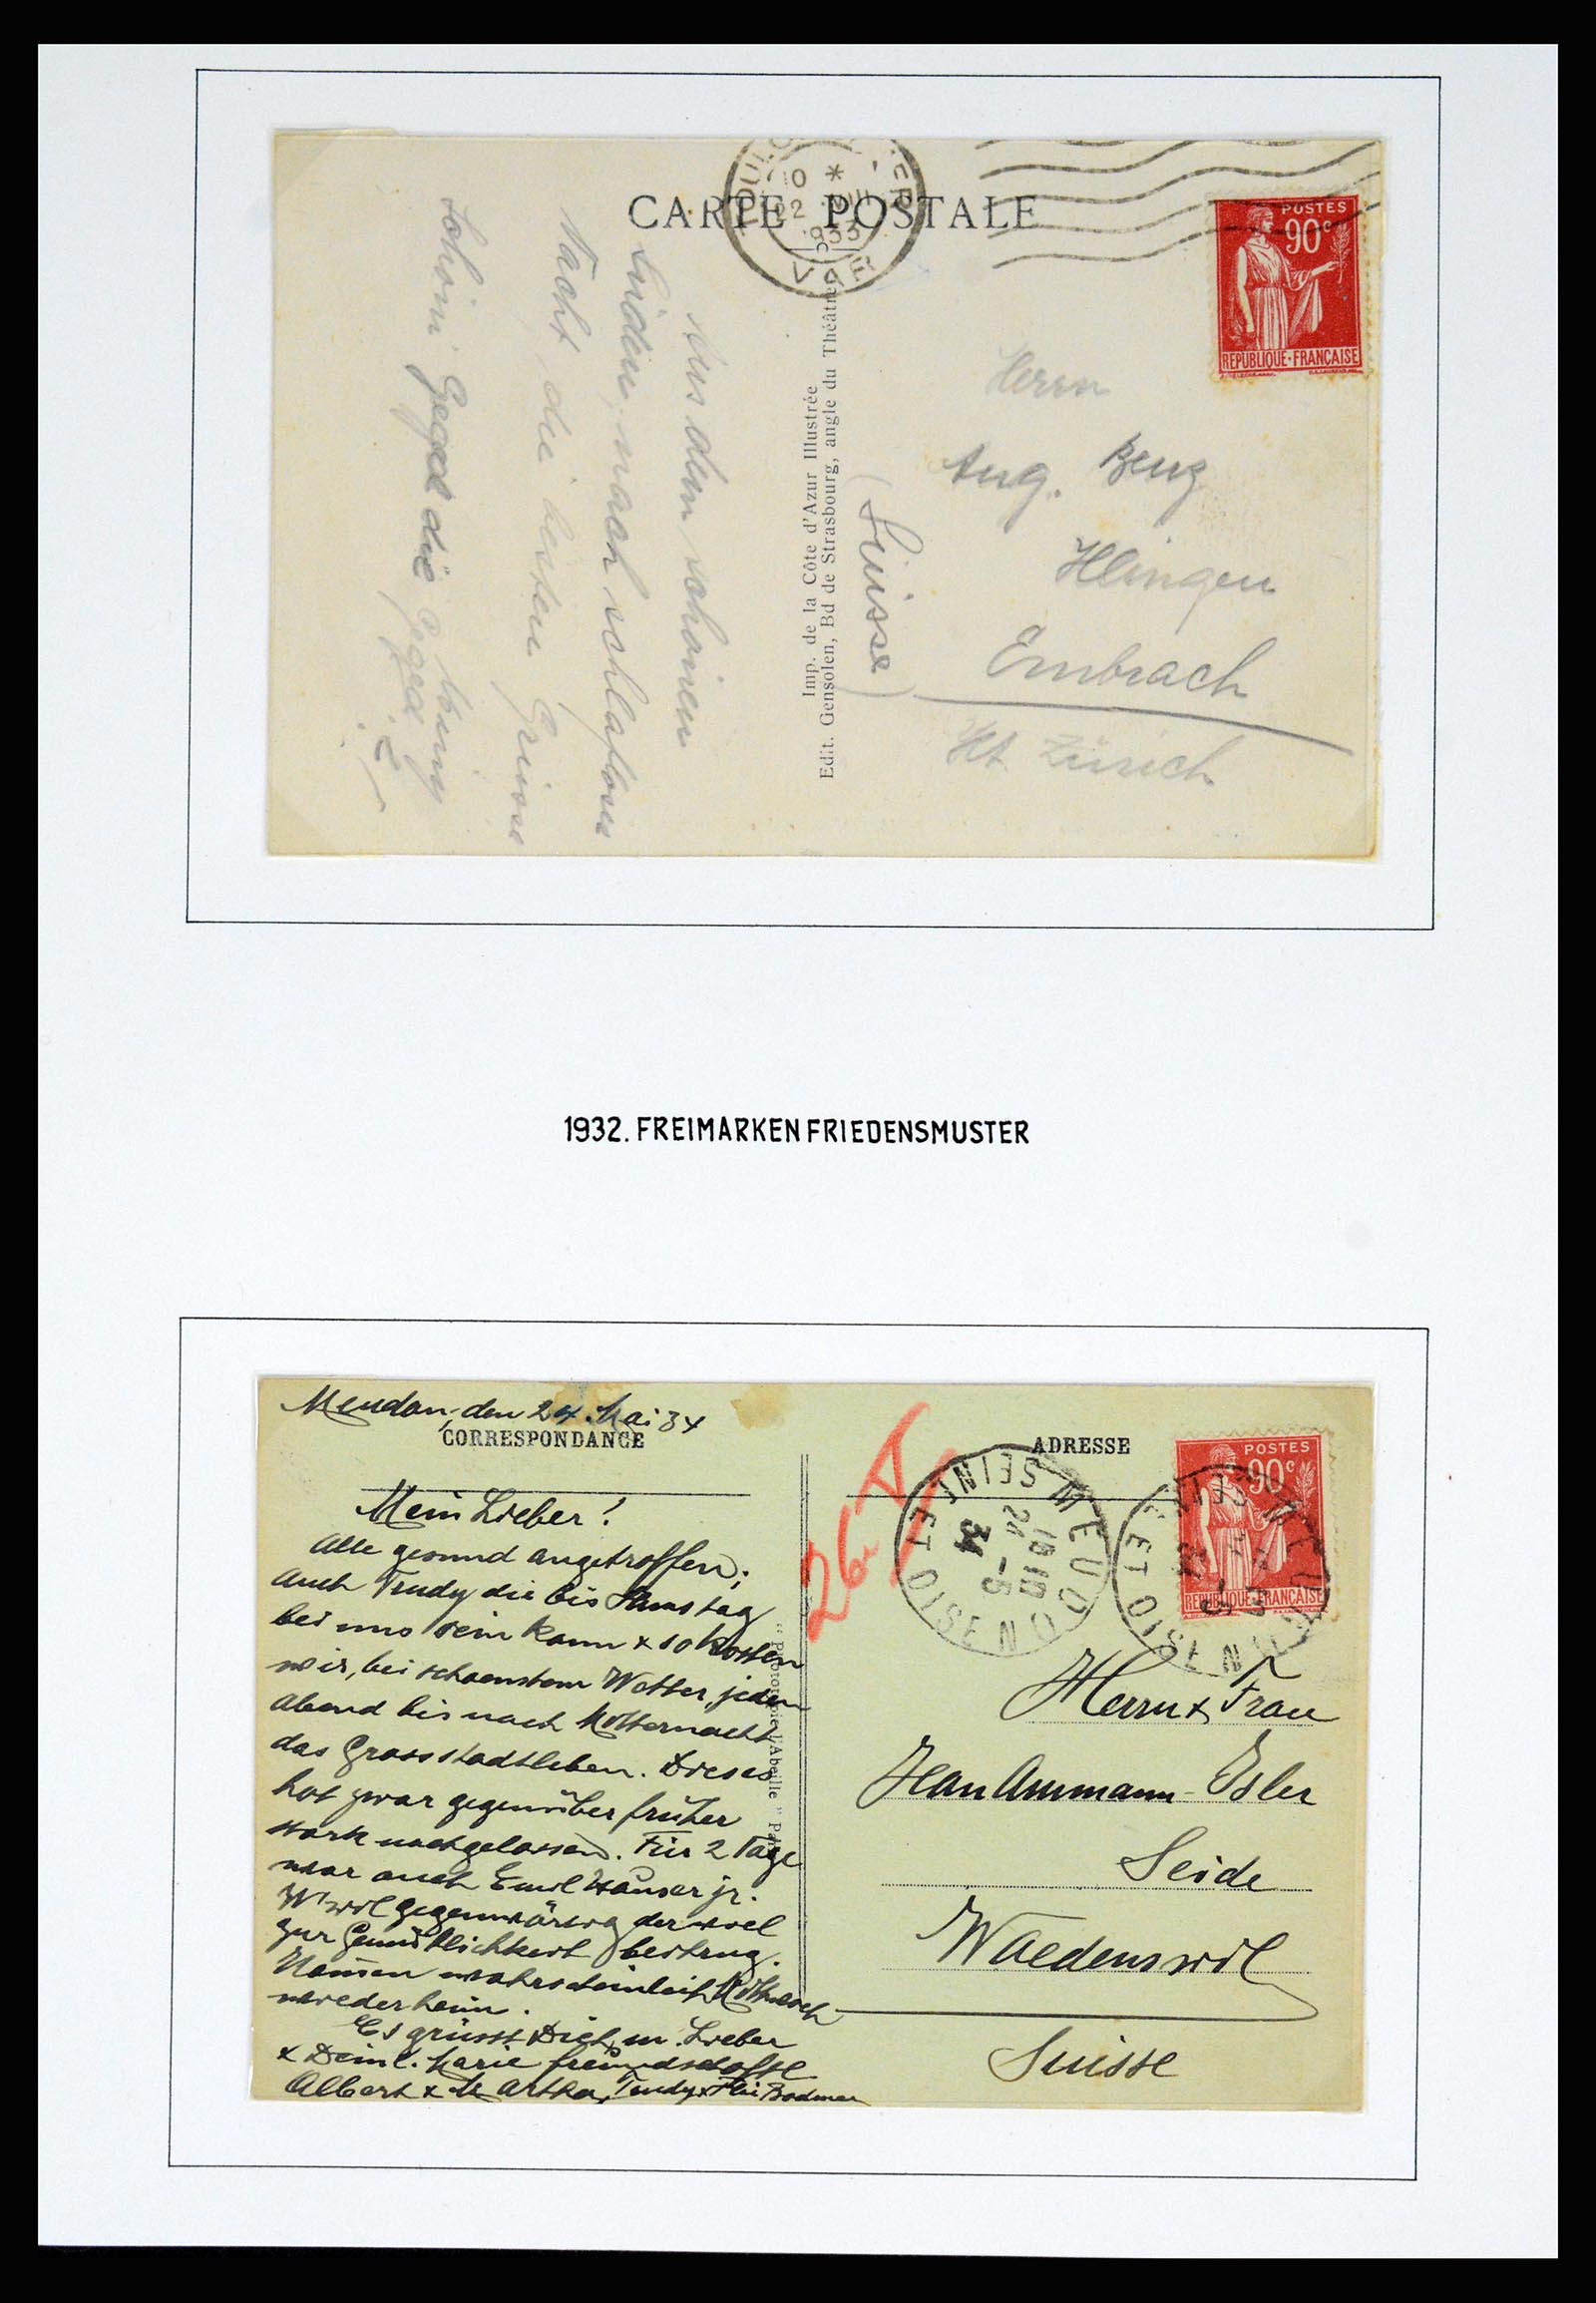 CARTE POSTALE
10 *
22 VIII
1933
VAR
POSTES
90c
REPUBLIQUE-FRANÇAISE
Aus dem schönen
Süden, nach schlafloser
Nacht die besten Grüsse
Imp. de la Côte d'Azur Illustrée
Edit. Gensolen, Bd de Strasbourg, angle du Théâtre
Herrn
Aug. Benz
Embrach
Kt. Zürich
(Suisse)
1932. FREIMARKEN FRIEDENSMUSTER
Meudon, den 24. Mai 34
CORRESPONDANCE
Mein Lieber!
Alle gesund angetroffen;
Auch Trudy die bis Samstag
bei uns sein kann & so kosten
wir, bei schoenstem Wetter, jeden
Abend bis nach Mitternacht
das Grossstadtleben. Dieses
hat zwar gegenüber früher
stark nachgelassen. Für 2 Tage
war auch Emil Hauser jr.
W'wil gegenwärtig der viel
zur Gemütlichkeit beitrug.
wahrscheinlich Mittwoch
wieder heim.
Es grüsst Dich, m. Lieber
& Deine l. Marie freundschaftl.
Albert & Martha, Trudy & Bodmer
26. V
ADRESSE
MEUDON
SEINE ET OISE
1810
24 -5
34
POSTES
90c
REPUBLIQUE-FRANÇAISE
MEUDON
SEINE ET OISE
Herrn & Frau
Ammann-Isler
Seide
Waedenswil
Suisse
"Phototypie l'Abeille"